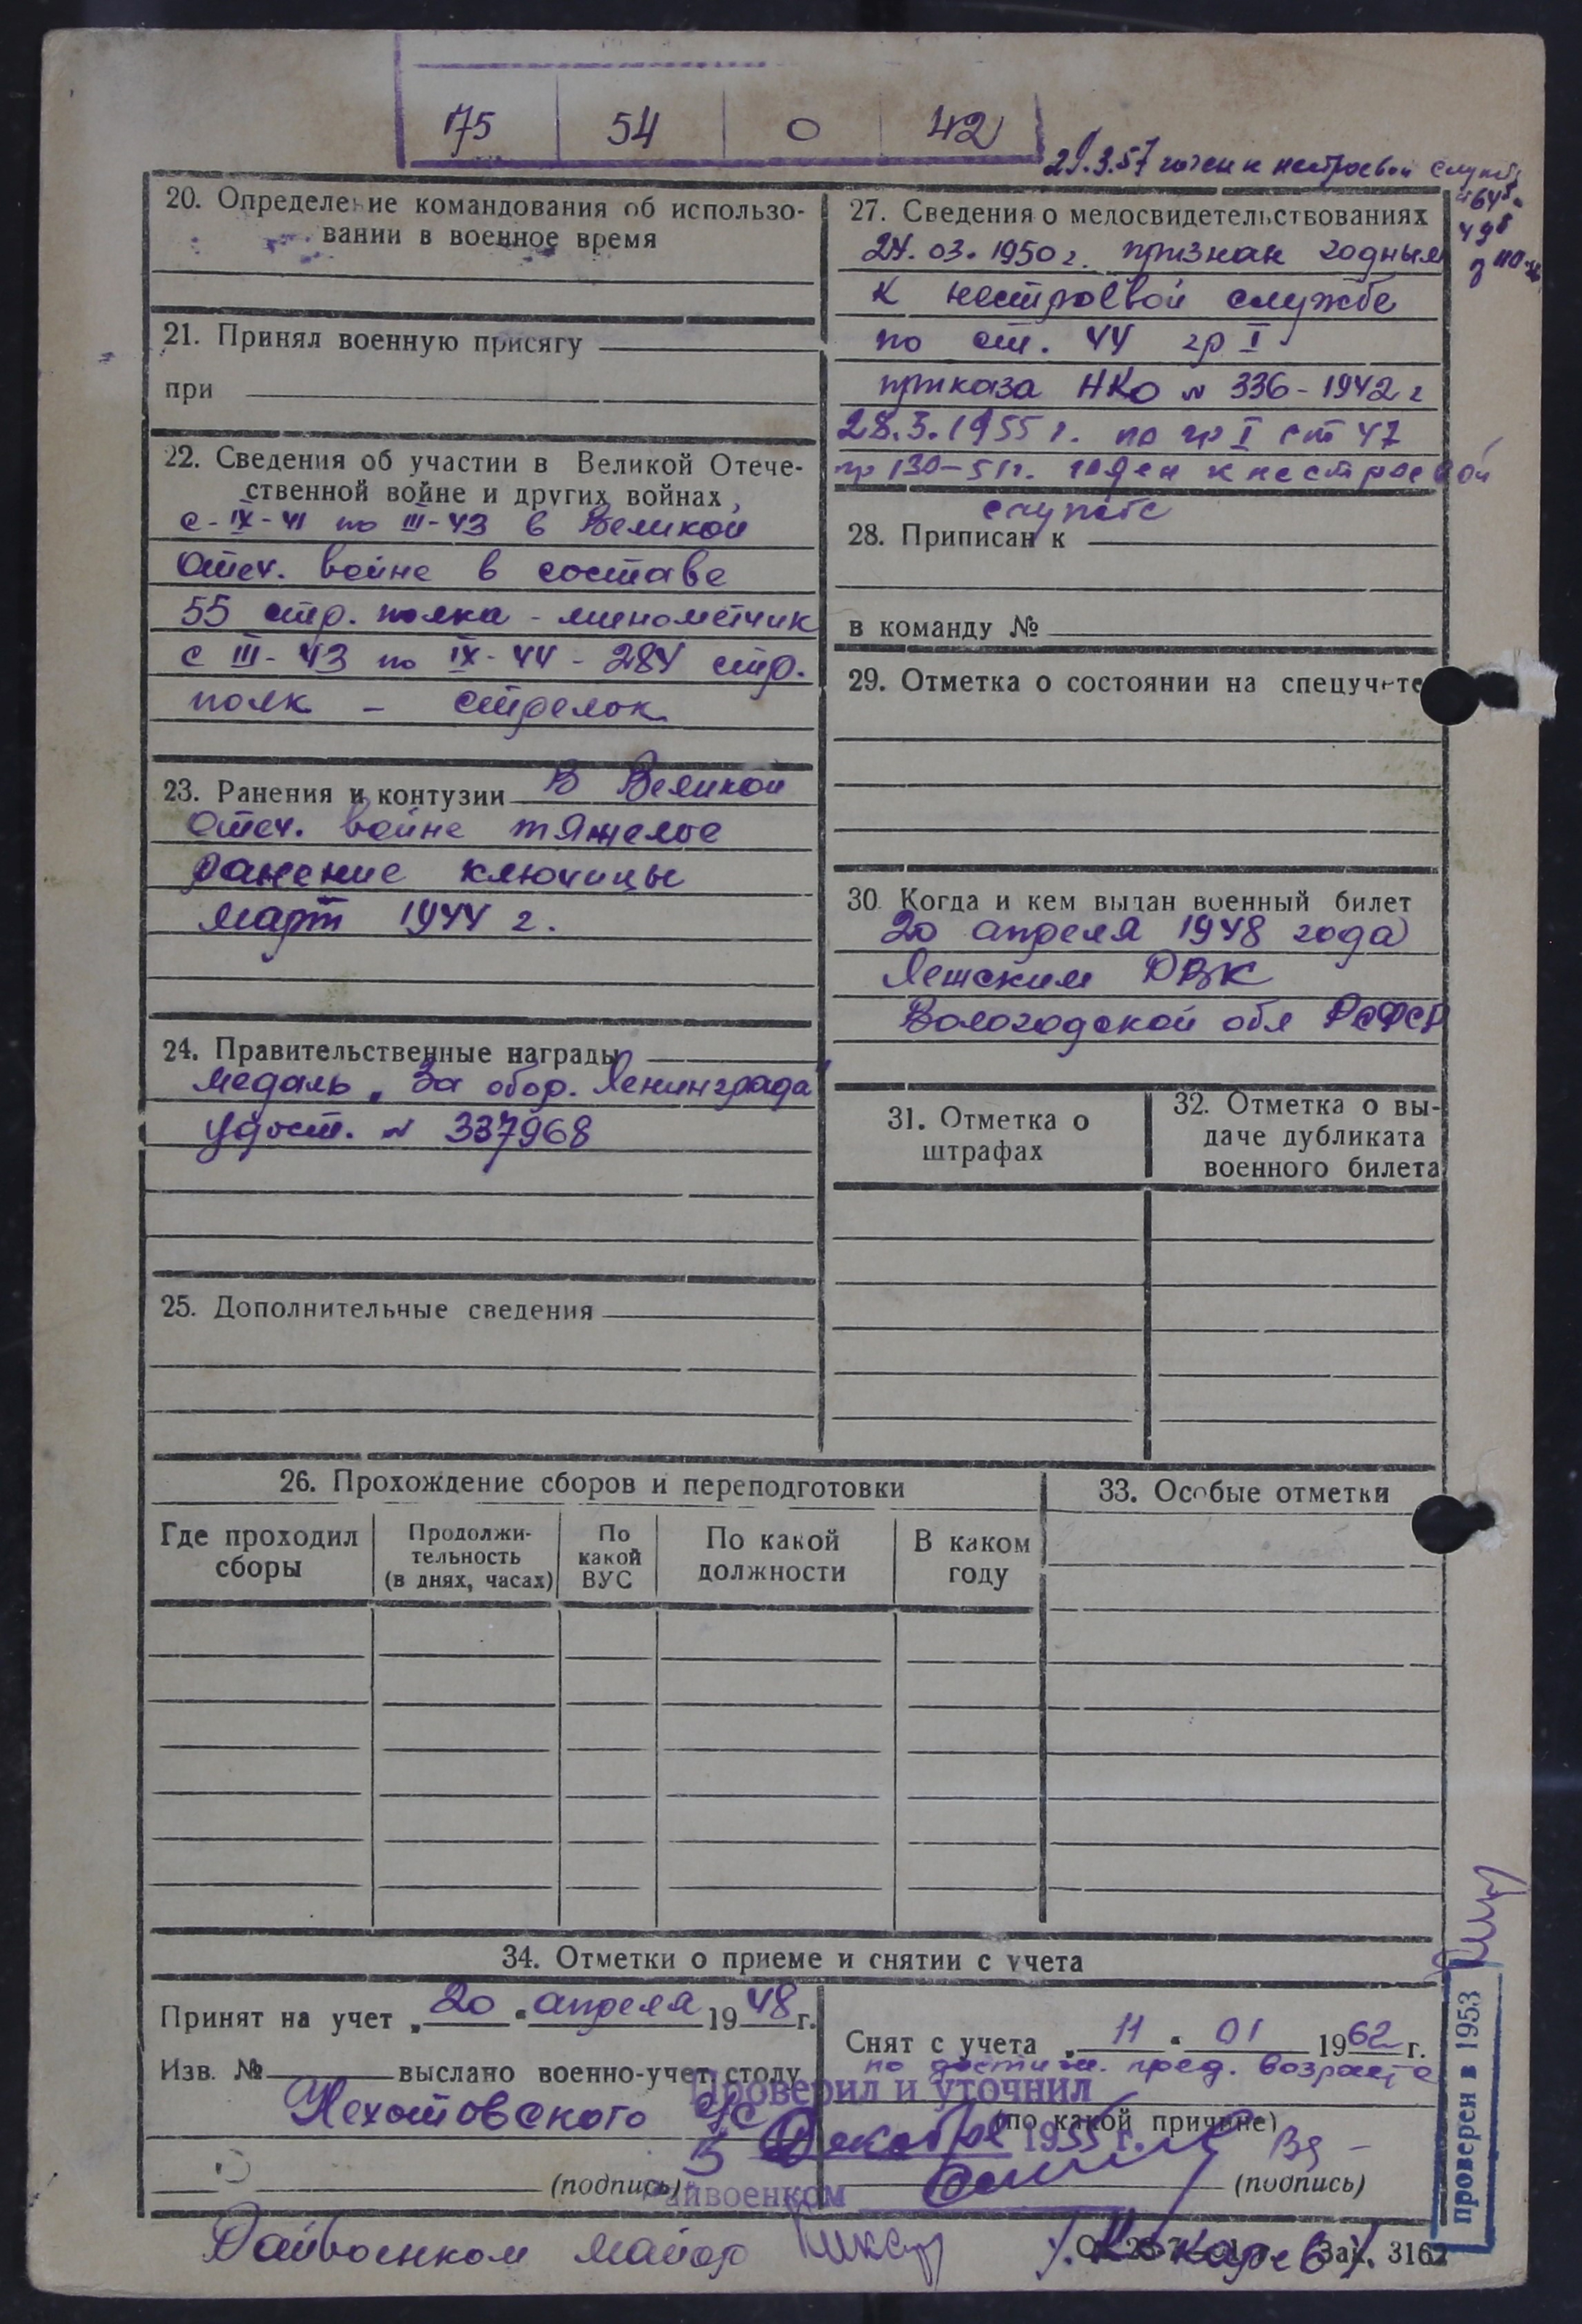 175 54 0 42
29.3.57 годен к нестроевой службе
20. Определение командования об использо-
вании в военное время
21. Принял военную присягу
при
22. Сведения об участии в Великой Отече-
ственной войне и других войнах
с-IX-41 по III-43 в Великой
Отеч. войне в составе
55 стр. полка - минометчик
с III-43 по IX-44 - 284 стр.
полк - стрелок
23. Ранения и контузии В Великой
Отеч. войне тяжелое
ранение ключицы
март 1944 г.
24. Правительственные награды
медаль „За обор. Ленинграда"
удост. № 337968
25. Дополнительные сведения
27. Сведения о медосвидетельствованиях
24.03.1950 г. признан годным
к нестроевой службе
по ст. 44 гр I
приказа НКО № 336-1942 г
28.3.1955 г. по гр I ст 47
пр 130-51г. годен к нестроевой
службе
28. Приписан к
в команду №
29. Отметка о состоянии на спецучете
30. Когда и кем выдан военный билет
20 апреля 1948 года
РВК
Вологодской обл РСФСР
31. Отметка о
штрафах
32. Отметка о вы-
даче дубликата
военного билета
26. Прохождение сборов и переподготовки
Где проходил
сборы
Продолжи-
тельность
(в днях, часах)
По
какой
ВУС
По какой
должности
В каком
году
33. Особые отметки
34. Отметки о приеме и снятии с учета
Принят на учет „20" апреля 1948 г.
Изв. № выслано военно-учет. столу
(подпись)
Снят с учета „11" 01 1962 г.
по достиж. пред. возраста
(по какой причине)
(подпись)
Проверил и уточнил
5 Декабря 1955 г.
Райвоенком
Райвоенком майор /Кокарев/.
Зак. 3162
проверен в 1953